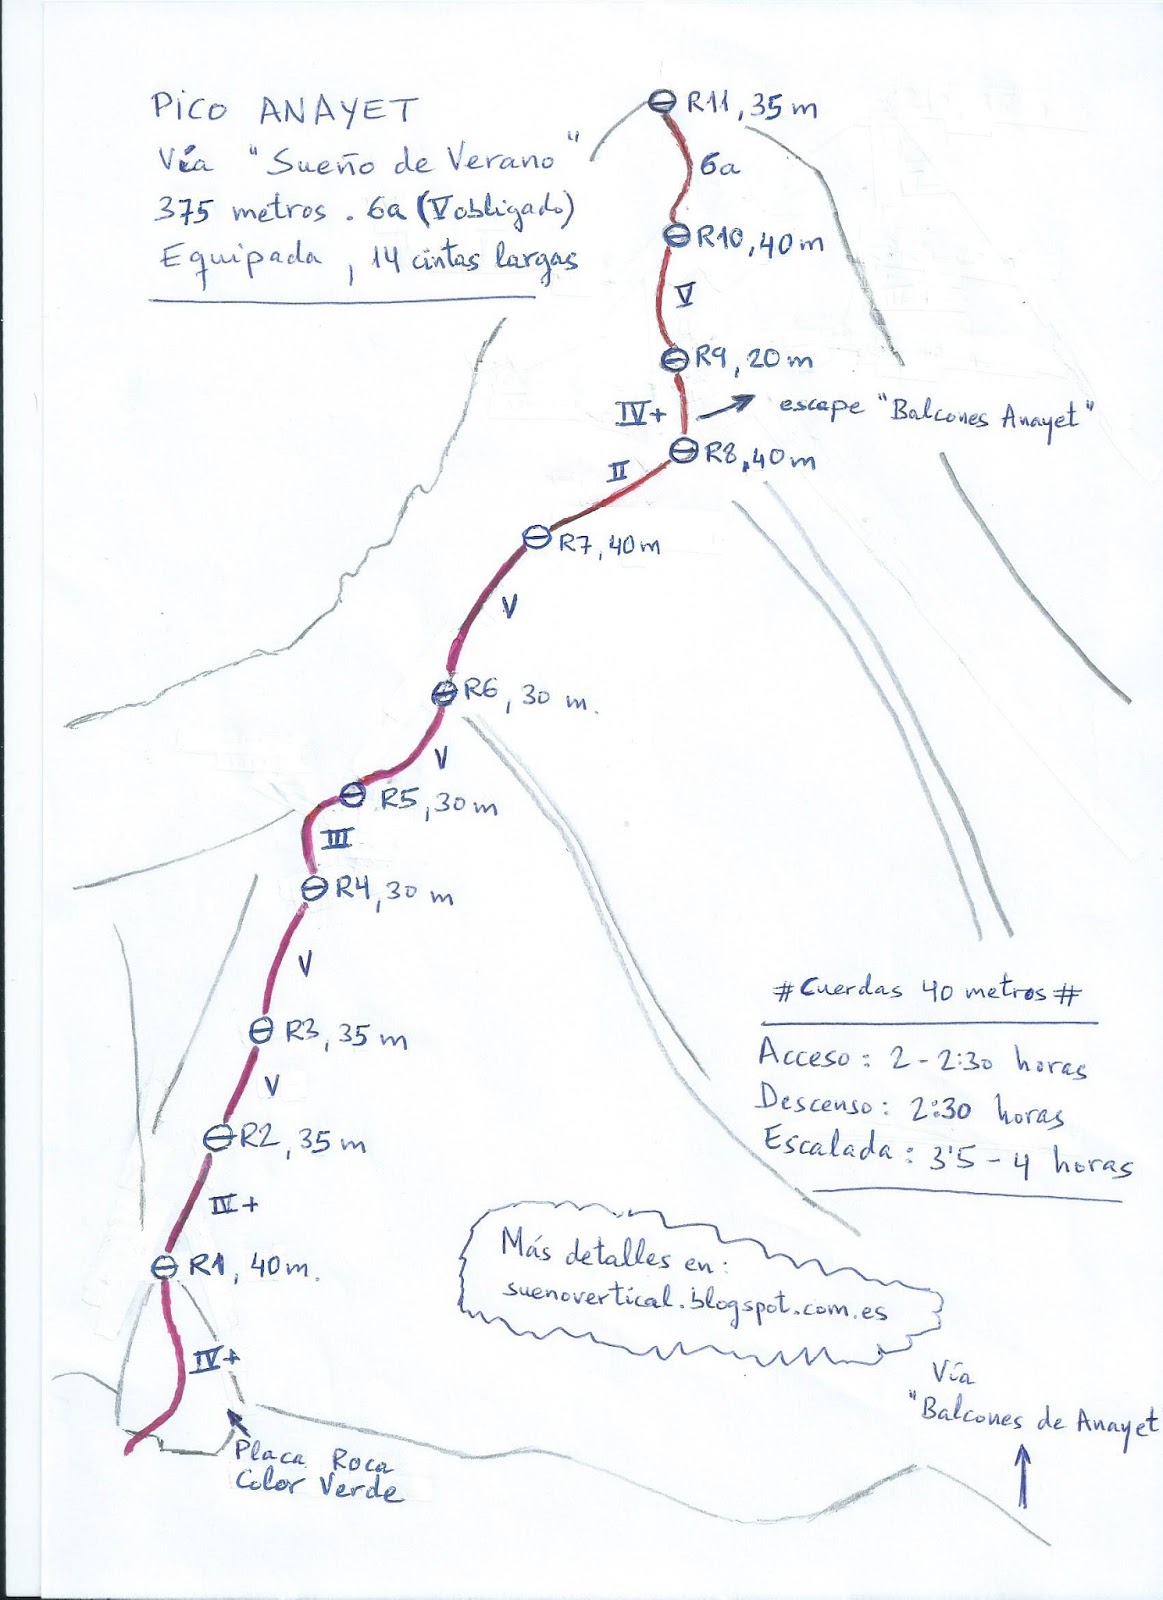 PICO ANAYET
Vía "Sueño de Verano"
375 metros . 6a (V obligado)
Equipada, 14 cintas largas
R11, 35 m
6a
R10, 40 m
V
R9, 20 m
IV+
escape "Balcones Anayet"
R8, 40 m
II
R7, 40 m
V
R6, 30 m.
V
R5, 30 m
III
R4, 30 m
V
R3, 35 m
V
R2, 35 m
IV+
R1, 40 m.
IV+
Placa Roca
Color Verde
#Cuerdas 40 metros#
Acceso: 2 - 2:30 horas
Descenso: 2:30 horas
Escalada: 3'5 - 4 horas
Más detalles en:
suenovertical.blogspot.com.es
Vía
"Balcones de Anayet